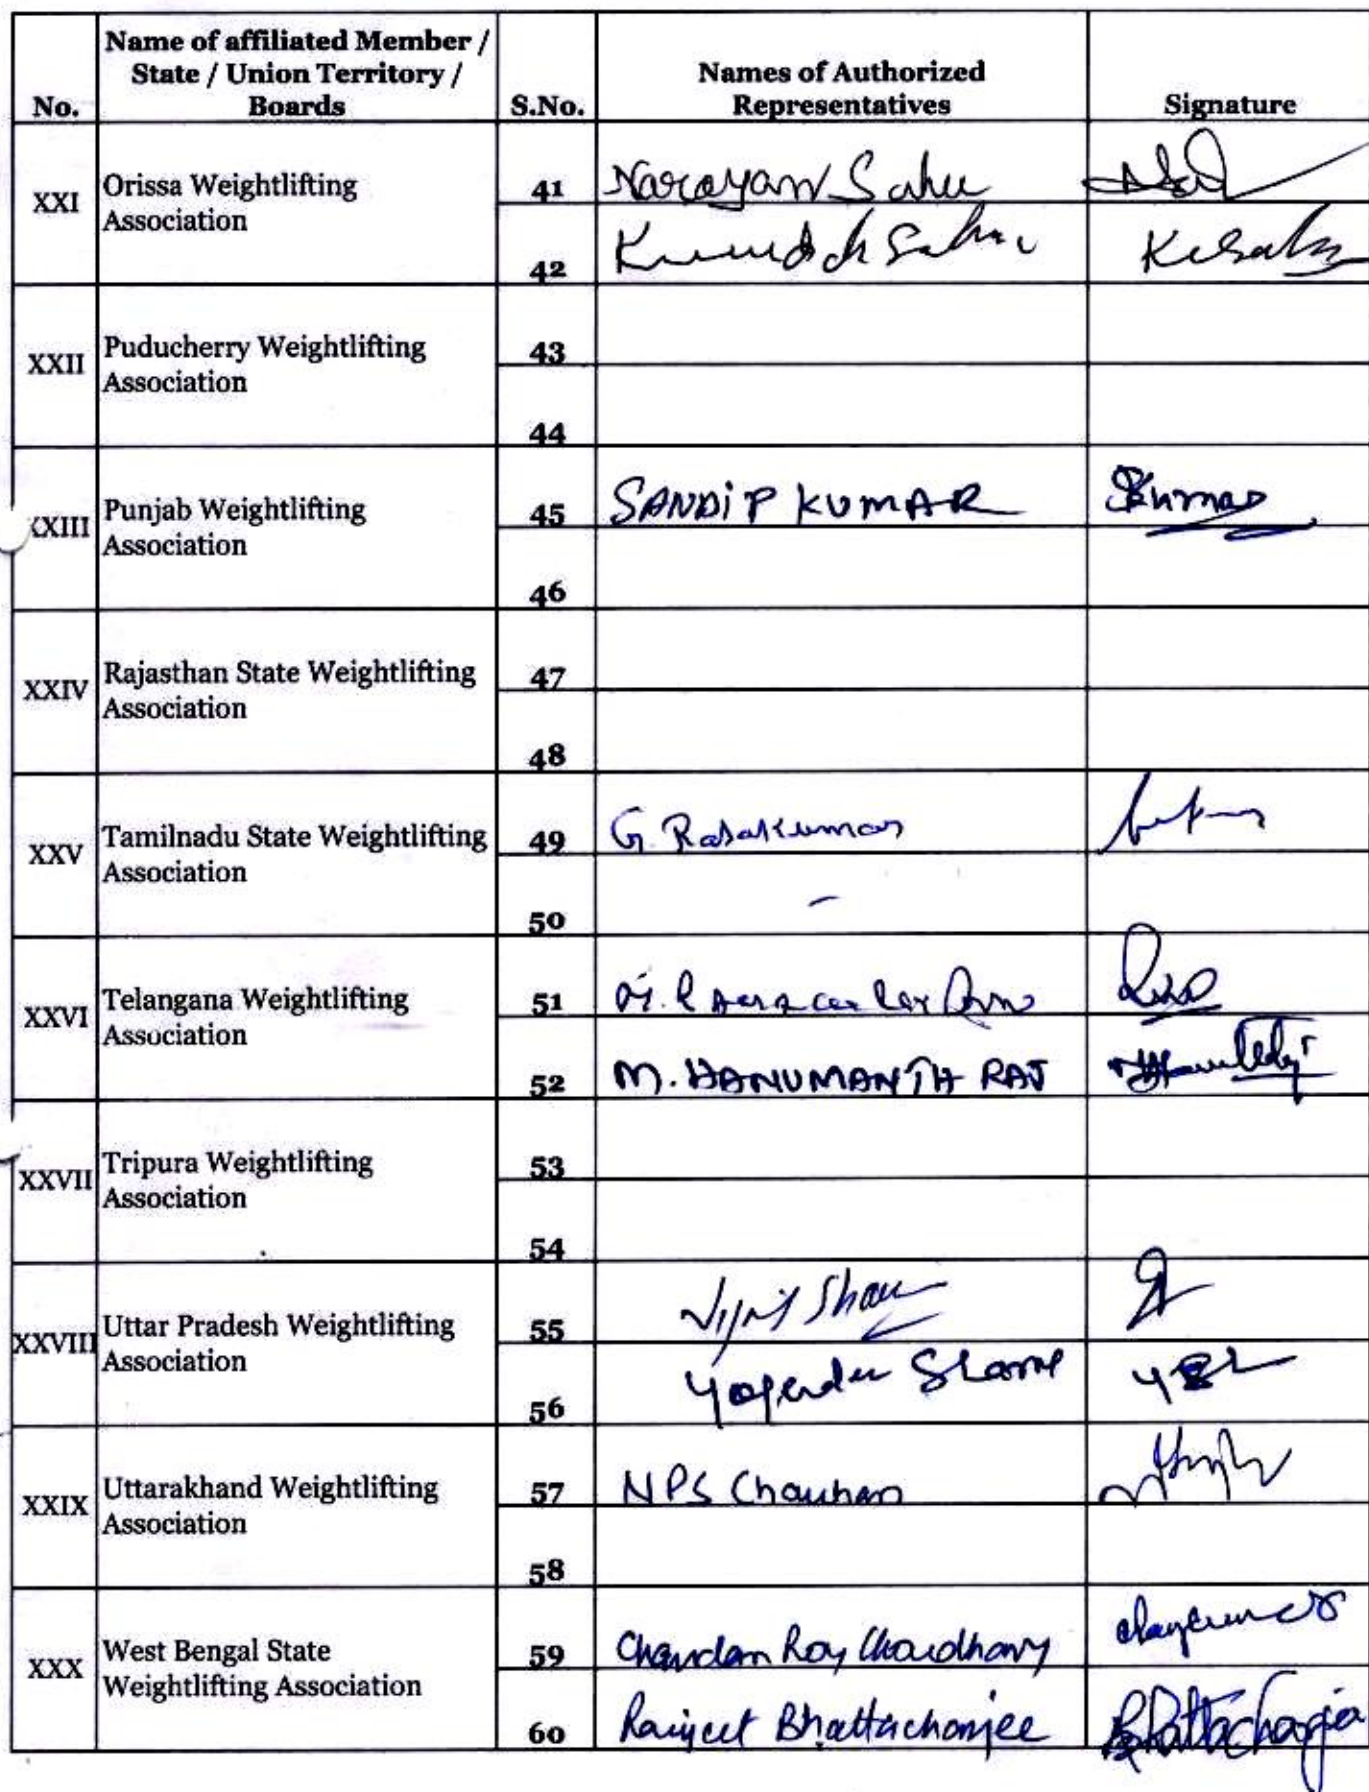 No. Name of affiliated Member / State / Union Territory / Boards S.No. Names of Authorized Representatives Signature
XXI Orissa Weightlifting Association
41 Narayan Sahu
42 Sahu
XXII Puducherry Weightlifting Association
43
44
XXIII Punjab Weightlifting Association
45 SANDIP KUMAR SKumar
46
XXIV Rajasthan State Weightlifting Association
47
48
XXV Tamilnadu State Weightlifting Association
49 G. Rajakumar
50 –
XXVI Telangana Weightlifting Association
51
52 M. HANUMANTH RAJ
XXVII Tripura Weightlifting Association
53
54
XXVIII Uttar Pradesh Weightlifting Association
55
56 Yogender
XXIX Uttarakhand Weightlifting Association
57 NPS Chauhan
58
XXX West Bengal State Weightlifting Association
59 Chandan Roy Choudhary
60 Ranjeet Bhattacharjee BBhattacharjee